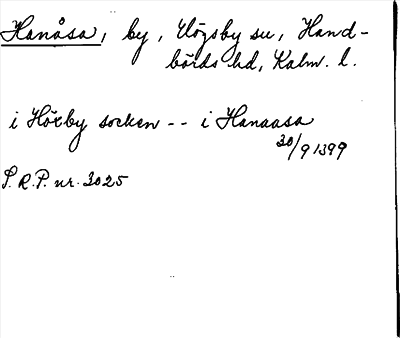 Hanåsa, by, Högsby sn, Hand-
börds hd, Kalm. l.
i Höxby socken -- i Hanaasa
30/9 1399
S.R.P. nr. 3025